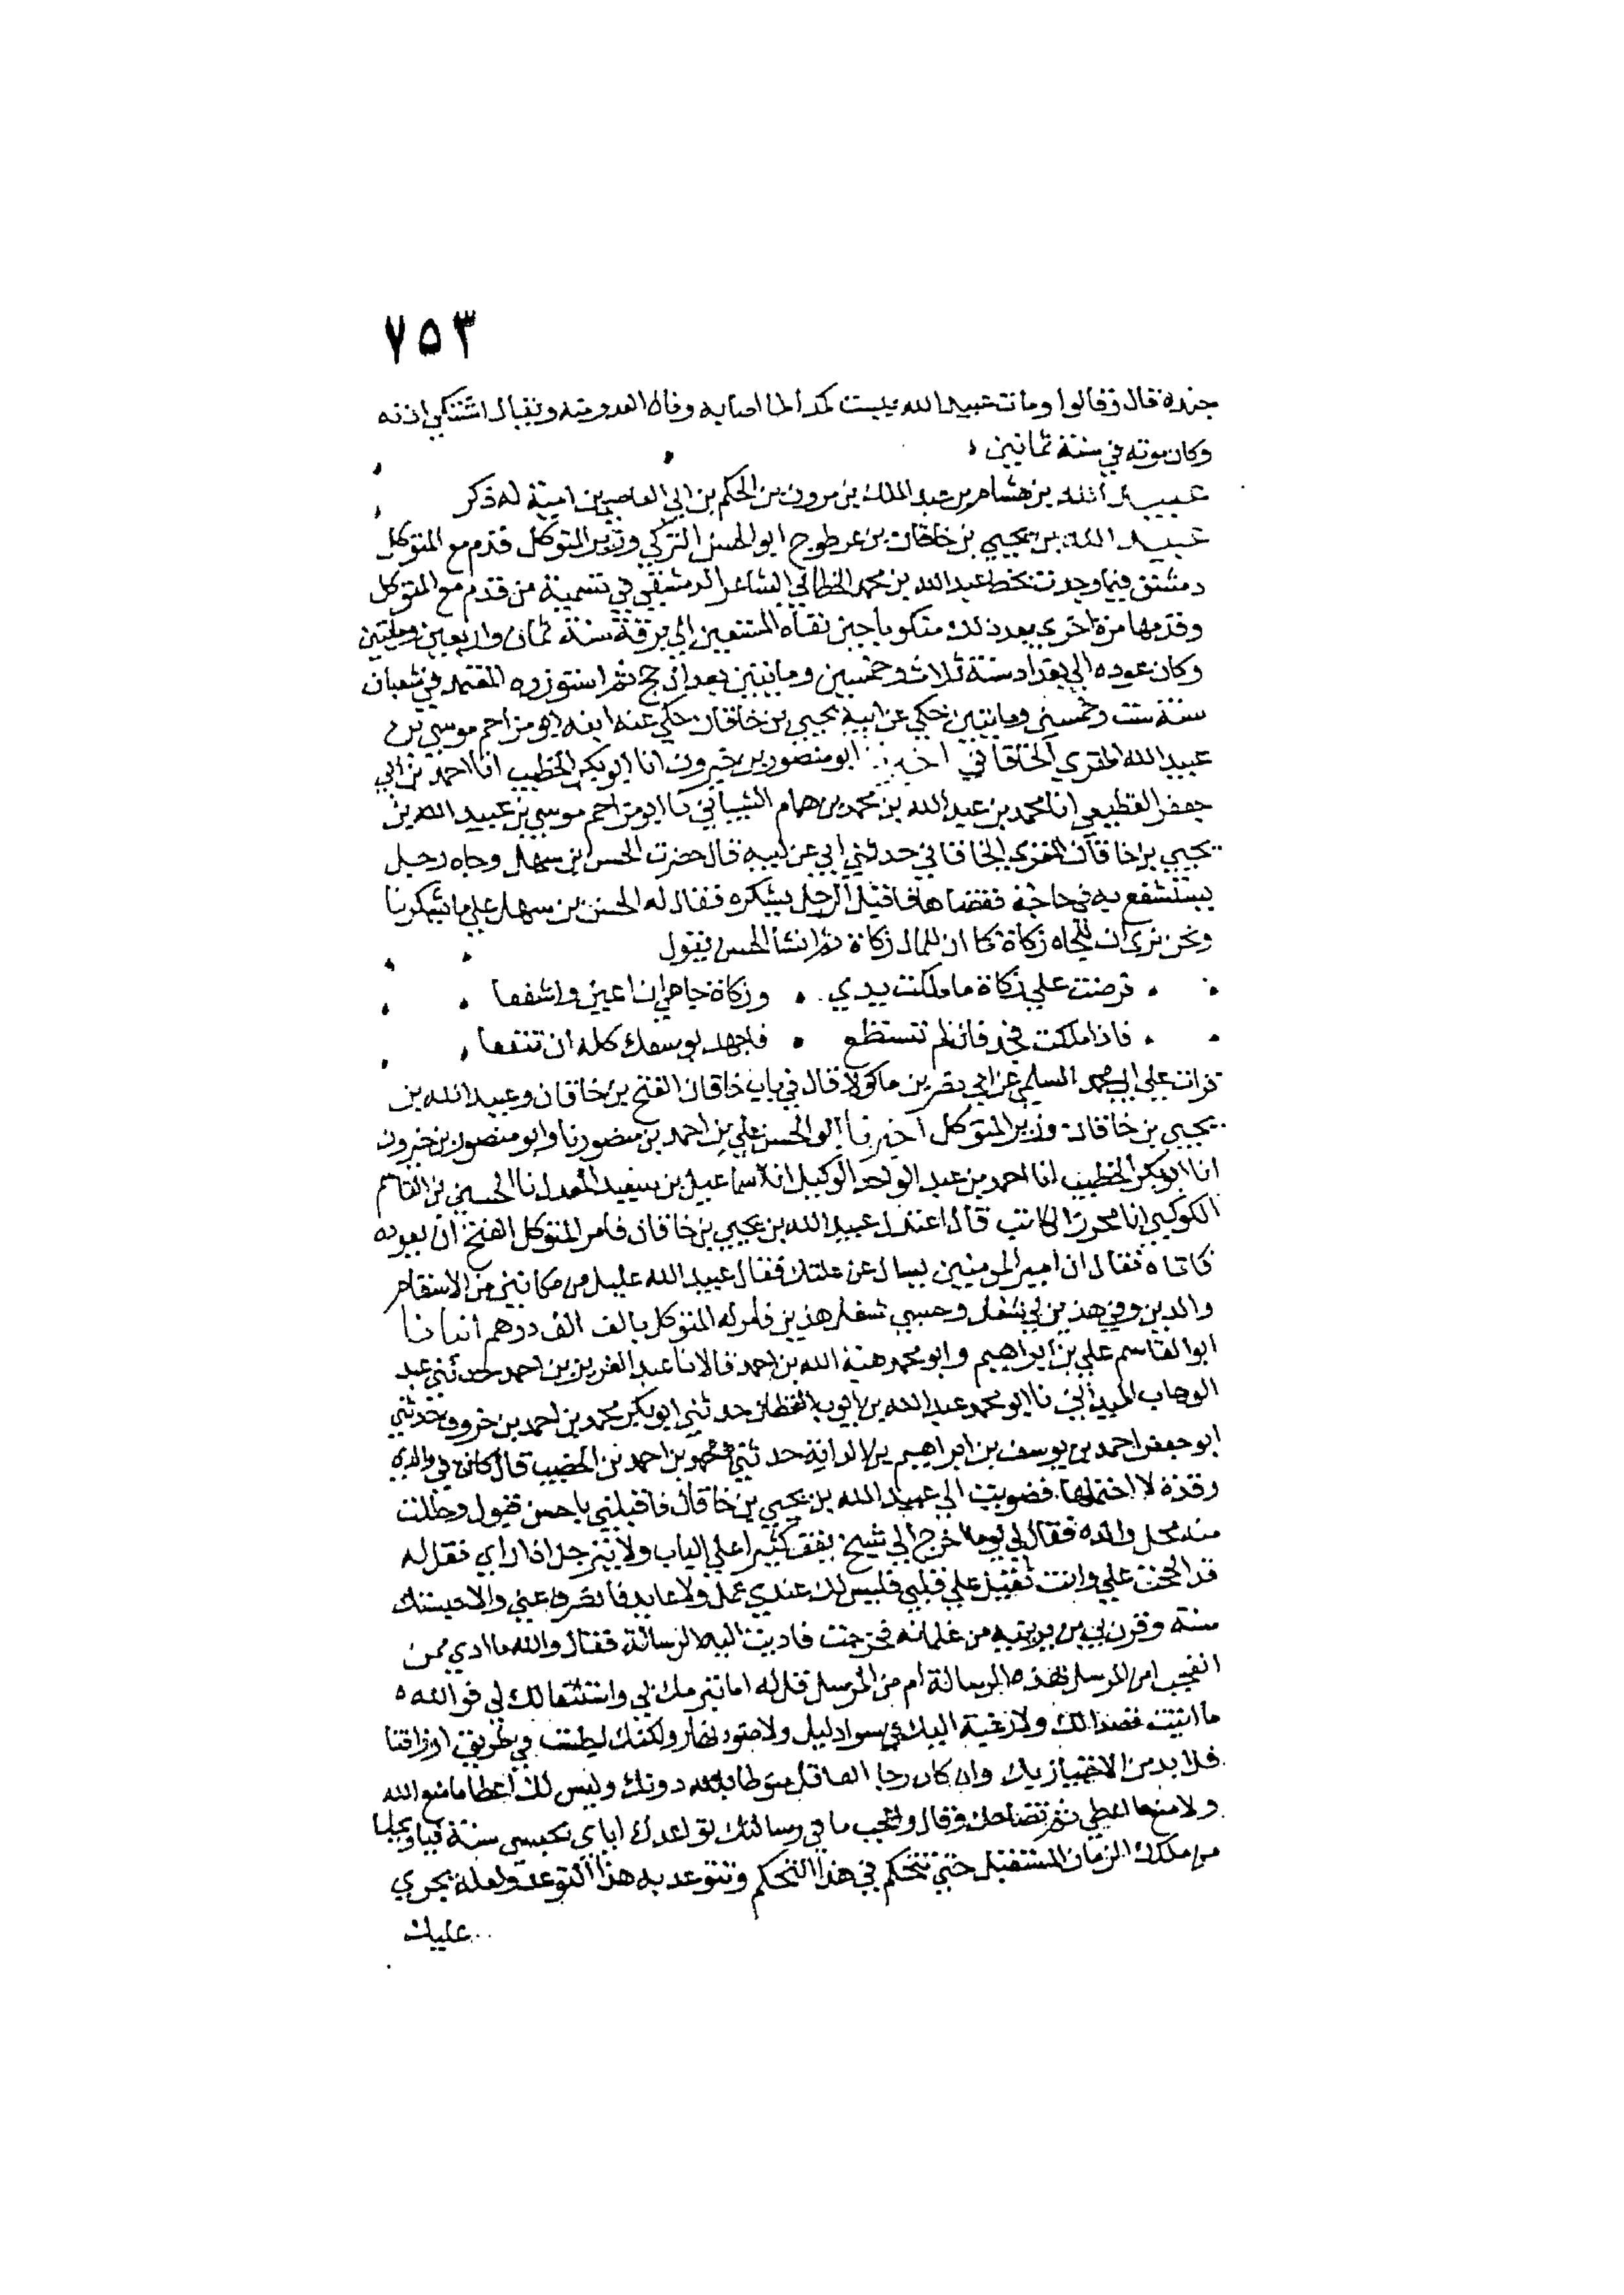 ٧٥٣
جنده قال وقالوا ومات عبيد الله ببست كمدا لما اصابه وفاه العدو منه ويقال اشتكى اذنه
وكان موته في سنة ثمانين
عبيد الله بن هشام بن عبد الملك بن مرون بن الحكم بن ابي العاصي بن امية له ذكر
عبيد الله بن يحيي بن خاقان بن عرطوج ابو الحسن التركي وزير المتوكل قدم مع المتوكل
دمشق فيما وجدت بخط عبد الله بن محمد الخطابي الشاعر الدمشقي في تسمية من قدم مع المتوكل
وقدمها مرة اخري بعد ذلك منكوبا حين نفاه المستعين الي برقة سنة ثمان واربعين ومايتين
وكان عوده الي بغداد سنة ثلاث وخمسين ومايتين بعد ان حج ثم استوزره المعتمد في شعبان
سنة ست وخمسين ومايتين حكي عن ابيه يحيي بن خاقان حكي عنه ابنه ابو مزاحم موسي بن
عبيد الله المقري الخاقاني اخبرنا ابو منصور بن خيرون انا ابو بكر الخطيب انا احمد بن ابي
جعفر القطيعي انا محمد بن عبد الله بن محمد بن همام الشيباني نا ابو مزاحم موسي بن عبيد الله بن
يحيي بن خاقان المقري الخاقاني حدثني ابي عن ابيه قال حضرت الحسن بن سهل وجاه رجل
يستشفع به في حاجة فقضاها فاقبل الرجل يشكره فقال له الحسن بن سهل علي ما تشكرنا
ونحن نري ان للجاه زكاة كما ان للمال زكاة ثم انشا الحسن يقول
فرضت علي زكاة ما ملكت يدي وزكاة جاهي ان اعين واشفعا
فاذا ملكت فجد فان لم تستطع فاجهد بوسعك كله ان تنفعا
قرات علي ابي محمد السلمي عن ابي نصر بن ماكولا قال في باب خاقان الفتح بن خاقان وعبيد الله بن
يحيي بن خاقان وزير المتوكل اخبرنا ابو الحسن علي بن احمد بن منصور نا وابو منصور بن خيرون
انا ابو بكر الخطيب انا احمد بن عبد الواحد الوكيل انا اسماعيل بن سعيد المعدل نا الحسين بن القاسم
الكوكبي انا محرز الكاتب قال اعتل عبيد الله بن يحيي بن خاقان فامر المتوكل الفتح ان يعوده
فاتاه فقال ان امير المومنين يسال عن علتك فقال عبيد الله عليل من مكانين من الاسقام
والدين وفي هذين لي شغل وحسبي شغل هذين فامر له المتوكل بالف الف درهم انبانا
ابو القاسم علي بن ابراهيم وابو محمد هبة الله بن احمد قالا نا عبد العزيز بن احمد حدثني عبد
الوهاب الميداني نا ابو محمد عبد الله بن ايوب القطان حدثني ابو بكر محمد بن احمد بن خروف حدثني
ابو جعفر احمد بن يوسف بن ابراهيم بن الداية حدثني محمد بن احمد بن الخصيب قال كان في والدي
وقذة لا احتملها فضويت الي عبيد الله بن يحيي بن خاقان فاقبلني باحسن قبول وحللت
منه محل والده فقال لي يوما اخرج الي شيخ يقف كثيرا علي الباب ولا يترجل اذا راي فقل له
قد الححت علي وانت ثقيل علي قلبي فليس لك عندي عمل ولا عايد فانصرف عني والا حبستك
سنة وقرن بي من يربيه من غلمانه فخرجت فاديت اليه الرسالة فقال والله ما ادري ممن
اتعجب امن المرسل بهذه الرسالة ام من المرسل قل له اما تبرمك بي واستثقالك لي فوالله
ما اتيت قصدا لك ولا رغبة اليك في سواد ليل ولا ضوء نهار ولكنك لطت في طريق ارزاقنا
فلا بد من الاجتياز بك وان كان رجا العاقل منوطا بالله دونك وليس لك اعطا ما منع الله
ولا منع ما اعطي ثم تضاحك وقال واعجب ما في رسالتك تواعدك اياي بحبس سنة فيا ويحك
من ملكك الزمان المستقبل حتي تتحكم في هذا التحكم وتتوعد به هذا التوعد ولعله يجري
عليك